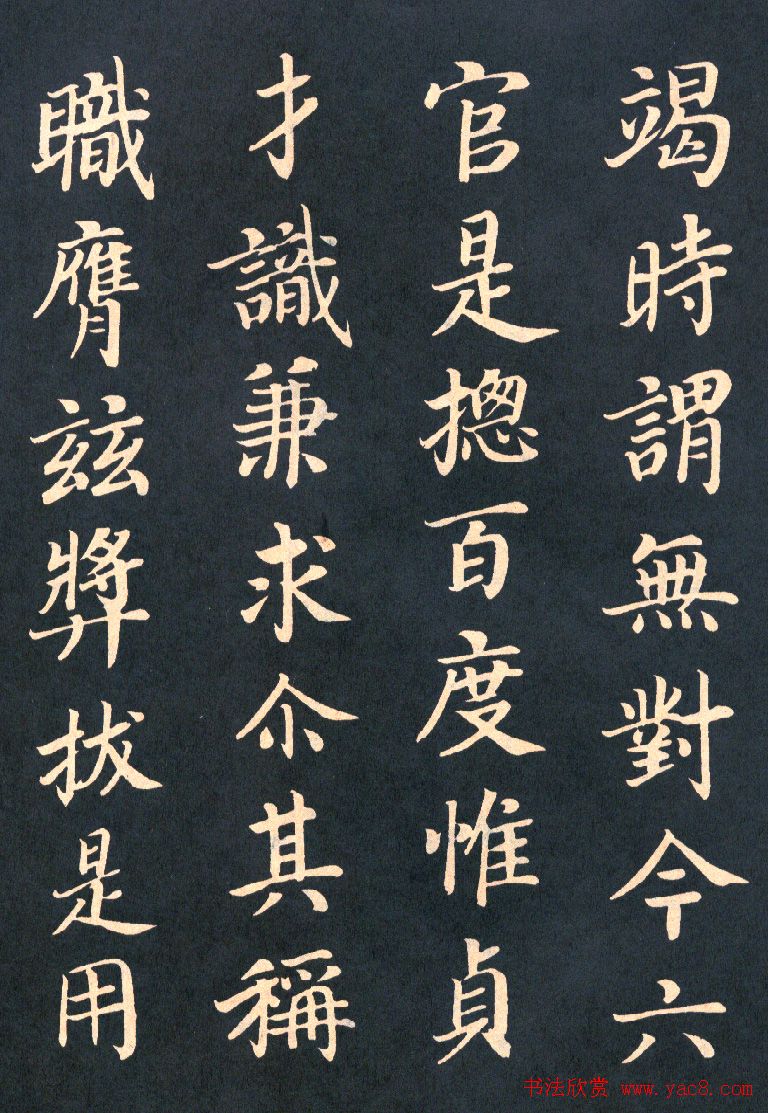 竭時謂無對今六
官是揔百度惟貞
才識兼求尒其稱
職膺兹奬拔是用
书法欣赏 www.yac8.com